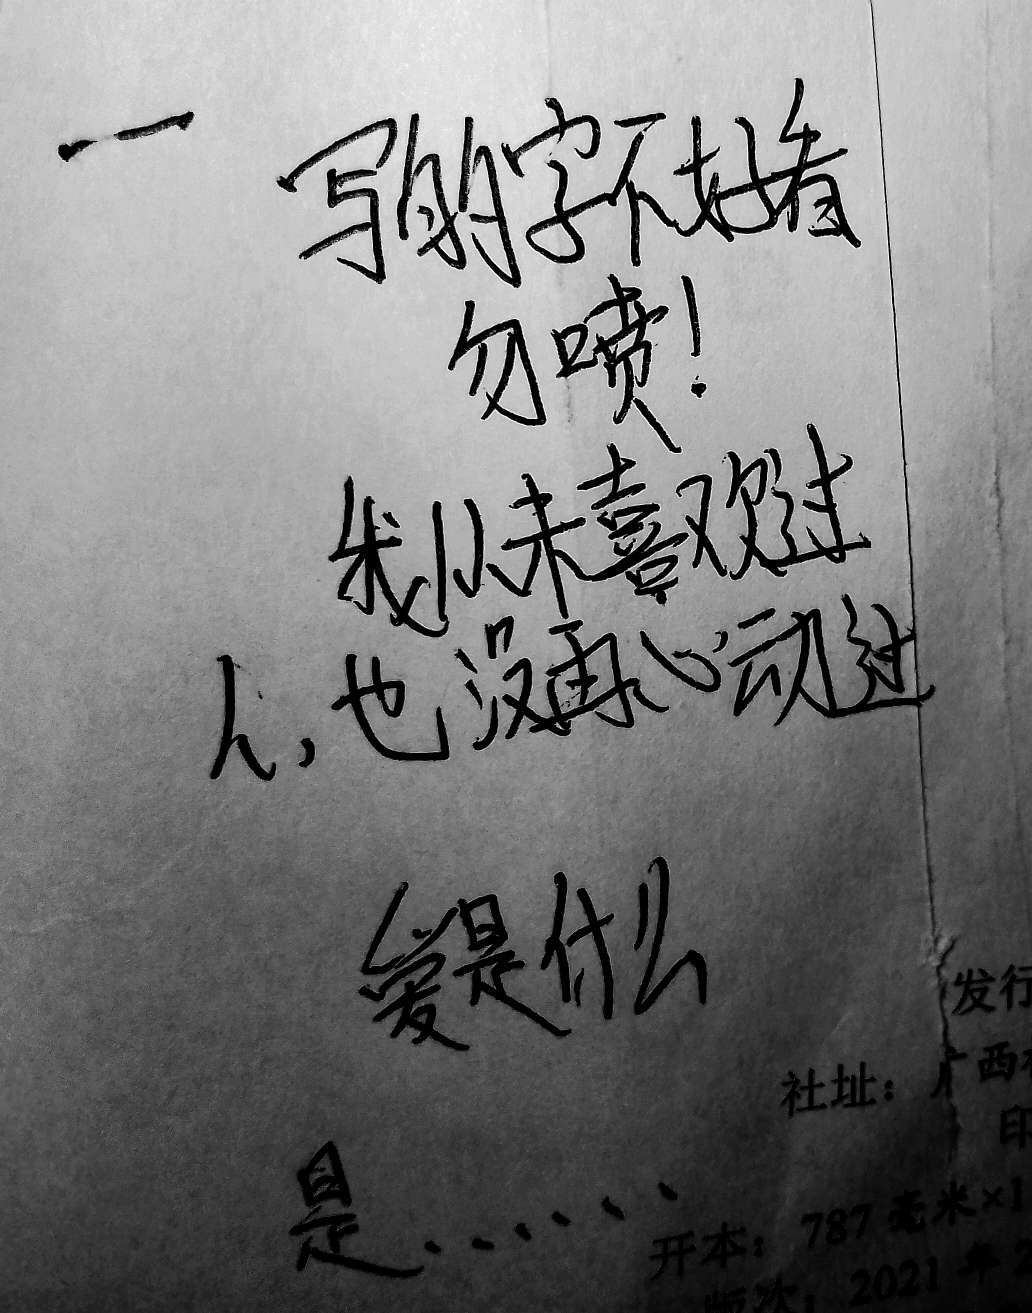 一 写的字不好看
勿喷！
我从未喜欢过
人，也没再心动过
爱是什么
是......
发行
社址：广西
印
开本：787毫米×1
版次：2021年2